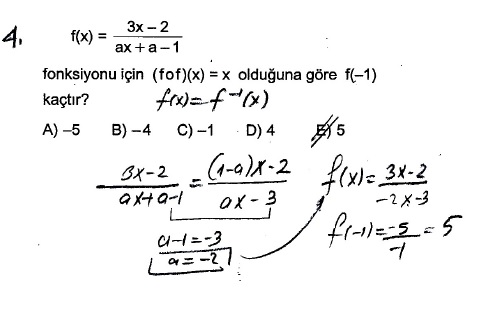 4.
f(x) = (3x − 2)/(ax + a − 1)
fonksiyonu için (fof)(x) = x olduğuna göre f(−1)
kaçtır? f(x) = f⁻¹(x)
A) −5 B) −4 C) −1 D) 4 E) 5
(3x − 2)/(ax + a − 1) = ((1 − a)x − 2)/(ax − 3)
a − 1 = −3
a = −2
f(x) = (3x − 2)/(−2x − 3)
f(−1) = −5/−1 = 5